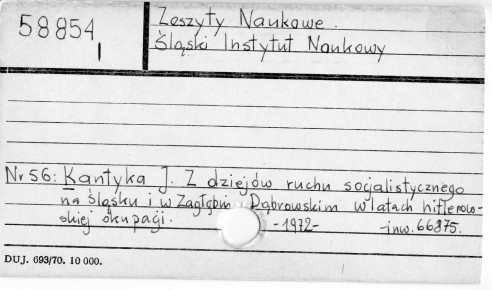 58854
I
Zeszyty Naukowe.
Śląski Instytut Naukowy
Nr 56: Kantyka J. Z dziejów ruchu socjalistycznego
na Śląsku i w Zagłębiu Dąbrowskim w latach hitlerow-
skiej okupacji. -1972- -inw. 66875.
DUJ. 693/70. 10 000.